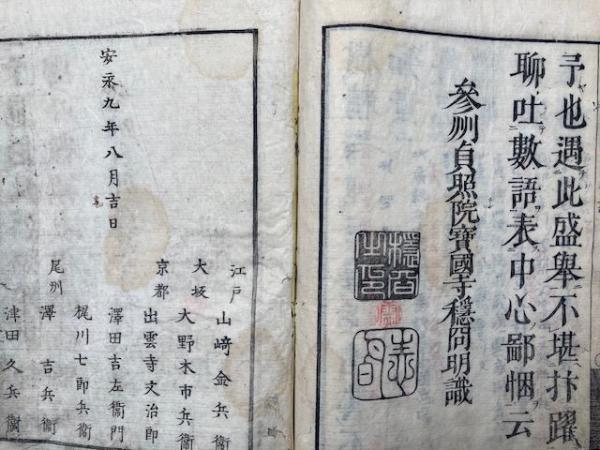 予也遇此盛舉不堪抃躍
聊吐數語表中心鄙悃云
參州貞照院寶國寺穩問明識
安永九年八月吉日
江戸 山﨑金兵衛
大坂 大野木市兵衛
京都 出雲寺文治郎
澤田吉左衛門
梶川七郎兵衛
尾州 澤吉兵衛
津田久兵衛